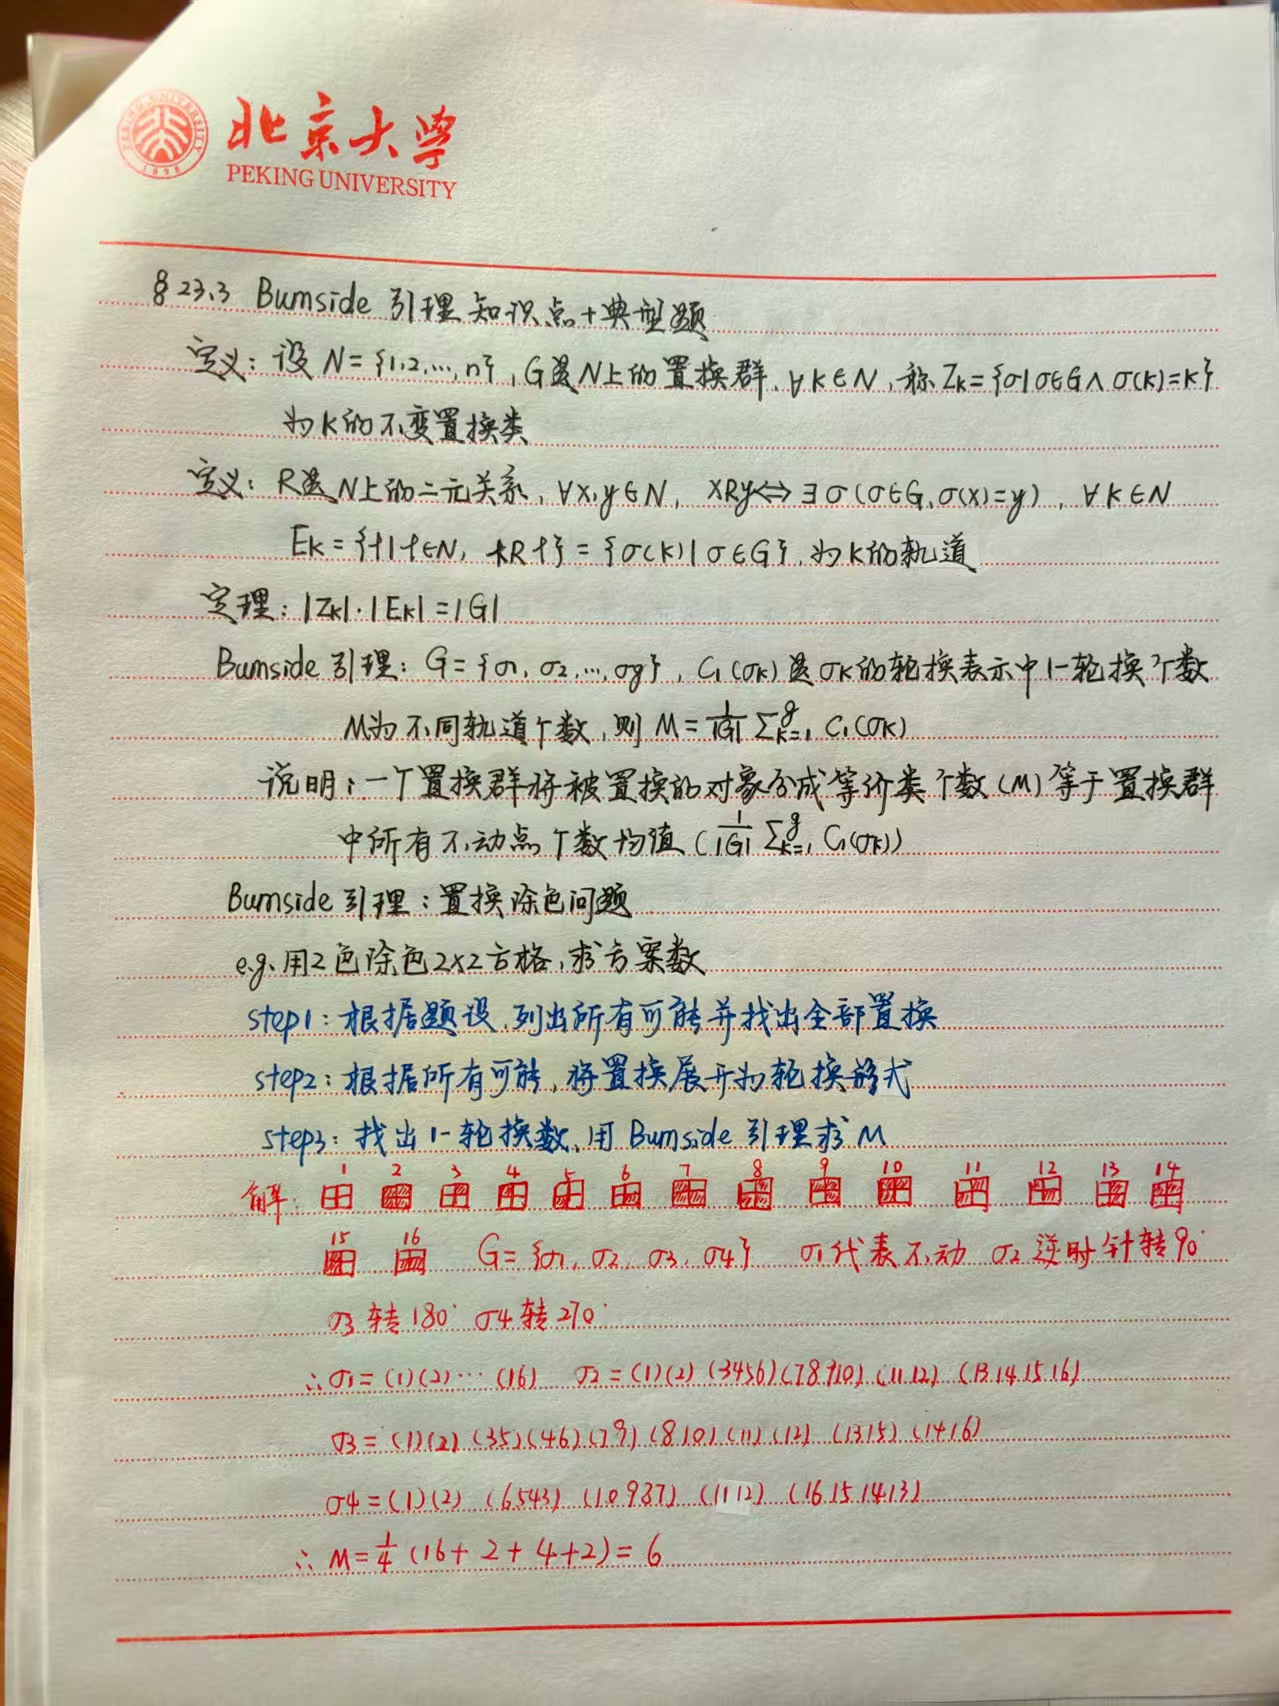 北京大学
PEKING UNIVERSITY
§23.3 Burnside 引理知识点+典型题
定义：设 N={1,2,…,n}, G是N上的置换群, ∀k∈N, 称 Zk={σ|σ∈G∧σ(k)=k}
为k的不变置换类
定义：R是N上的二元关系, ∀x,y∈N, xRy⇔∃σ(σ∈G,σ(x)=y), ∀k∈N
Ek={t|t∈N, kRt}={σ(k)|σ∈G}, 为k的轨道
定理：|Zk|·|Ek|=|G|
Burnside 引理：G={σ1, σ2, …, σg}, C1(σk)是σk的轮换表示中1-轮换个数
M为不同轨道个数, 则 M=1/|G| Σ_{k=1}^{g} C1(σk)
说明：一个置换群将被置换的对象分成等价类个数(M)等于置换群
中所有不动点个数均值(1/|G| Σ_{k=1}^{g} C1(σk))
Burnside 引理：置换涂色问题
e.g. 用2色涂色2×2方格, 求方案数
step1：根据题设, 列出所有可能并找出全部置换
step2：根据所有可能, 将置换展开为轮换形式
step3：找出1-轮换数, 用 Burnside 引理求 M
解：1 2 3 4 5 6 7 8 9 10 11 12 13 14
15 16 G={σ1, σ2, σ3, σ4} σ1代表不动 σ2逆时针转90°
σ3转180° σ4转270°
∴σ1=(1)(2)…(16) σ2=(1)(2)(3456)(78910)(11 12)(13 14 15 16)
σ3=(1)(2)(35)(46)(79)(810)(11)(12)(1315)(1416)
σ4=(1)(2)(6543)(10987)(11 12)(16 15 14 13)
∴M=1/4(16+2+4+2)=6